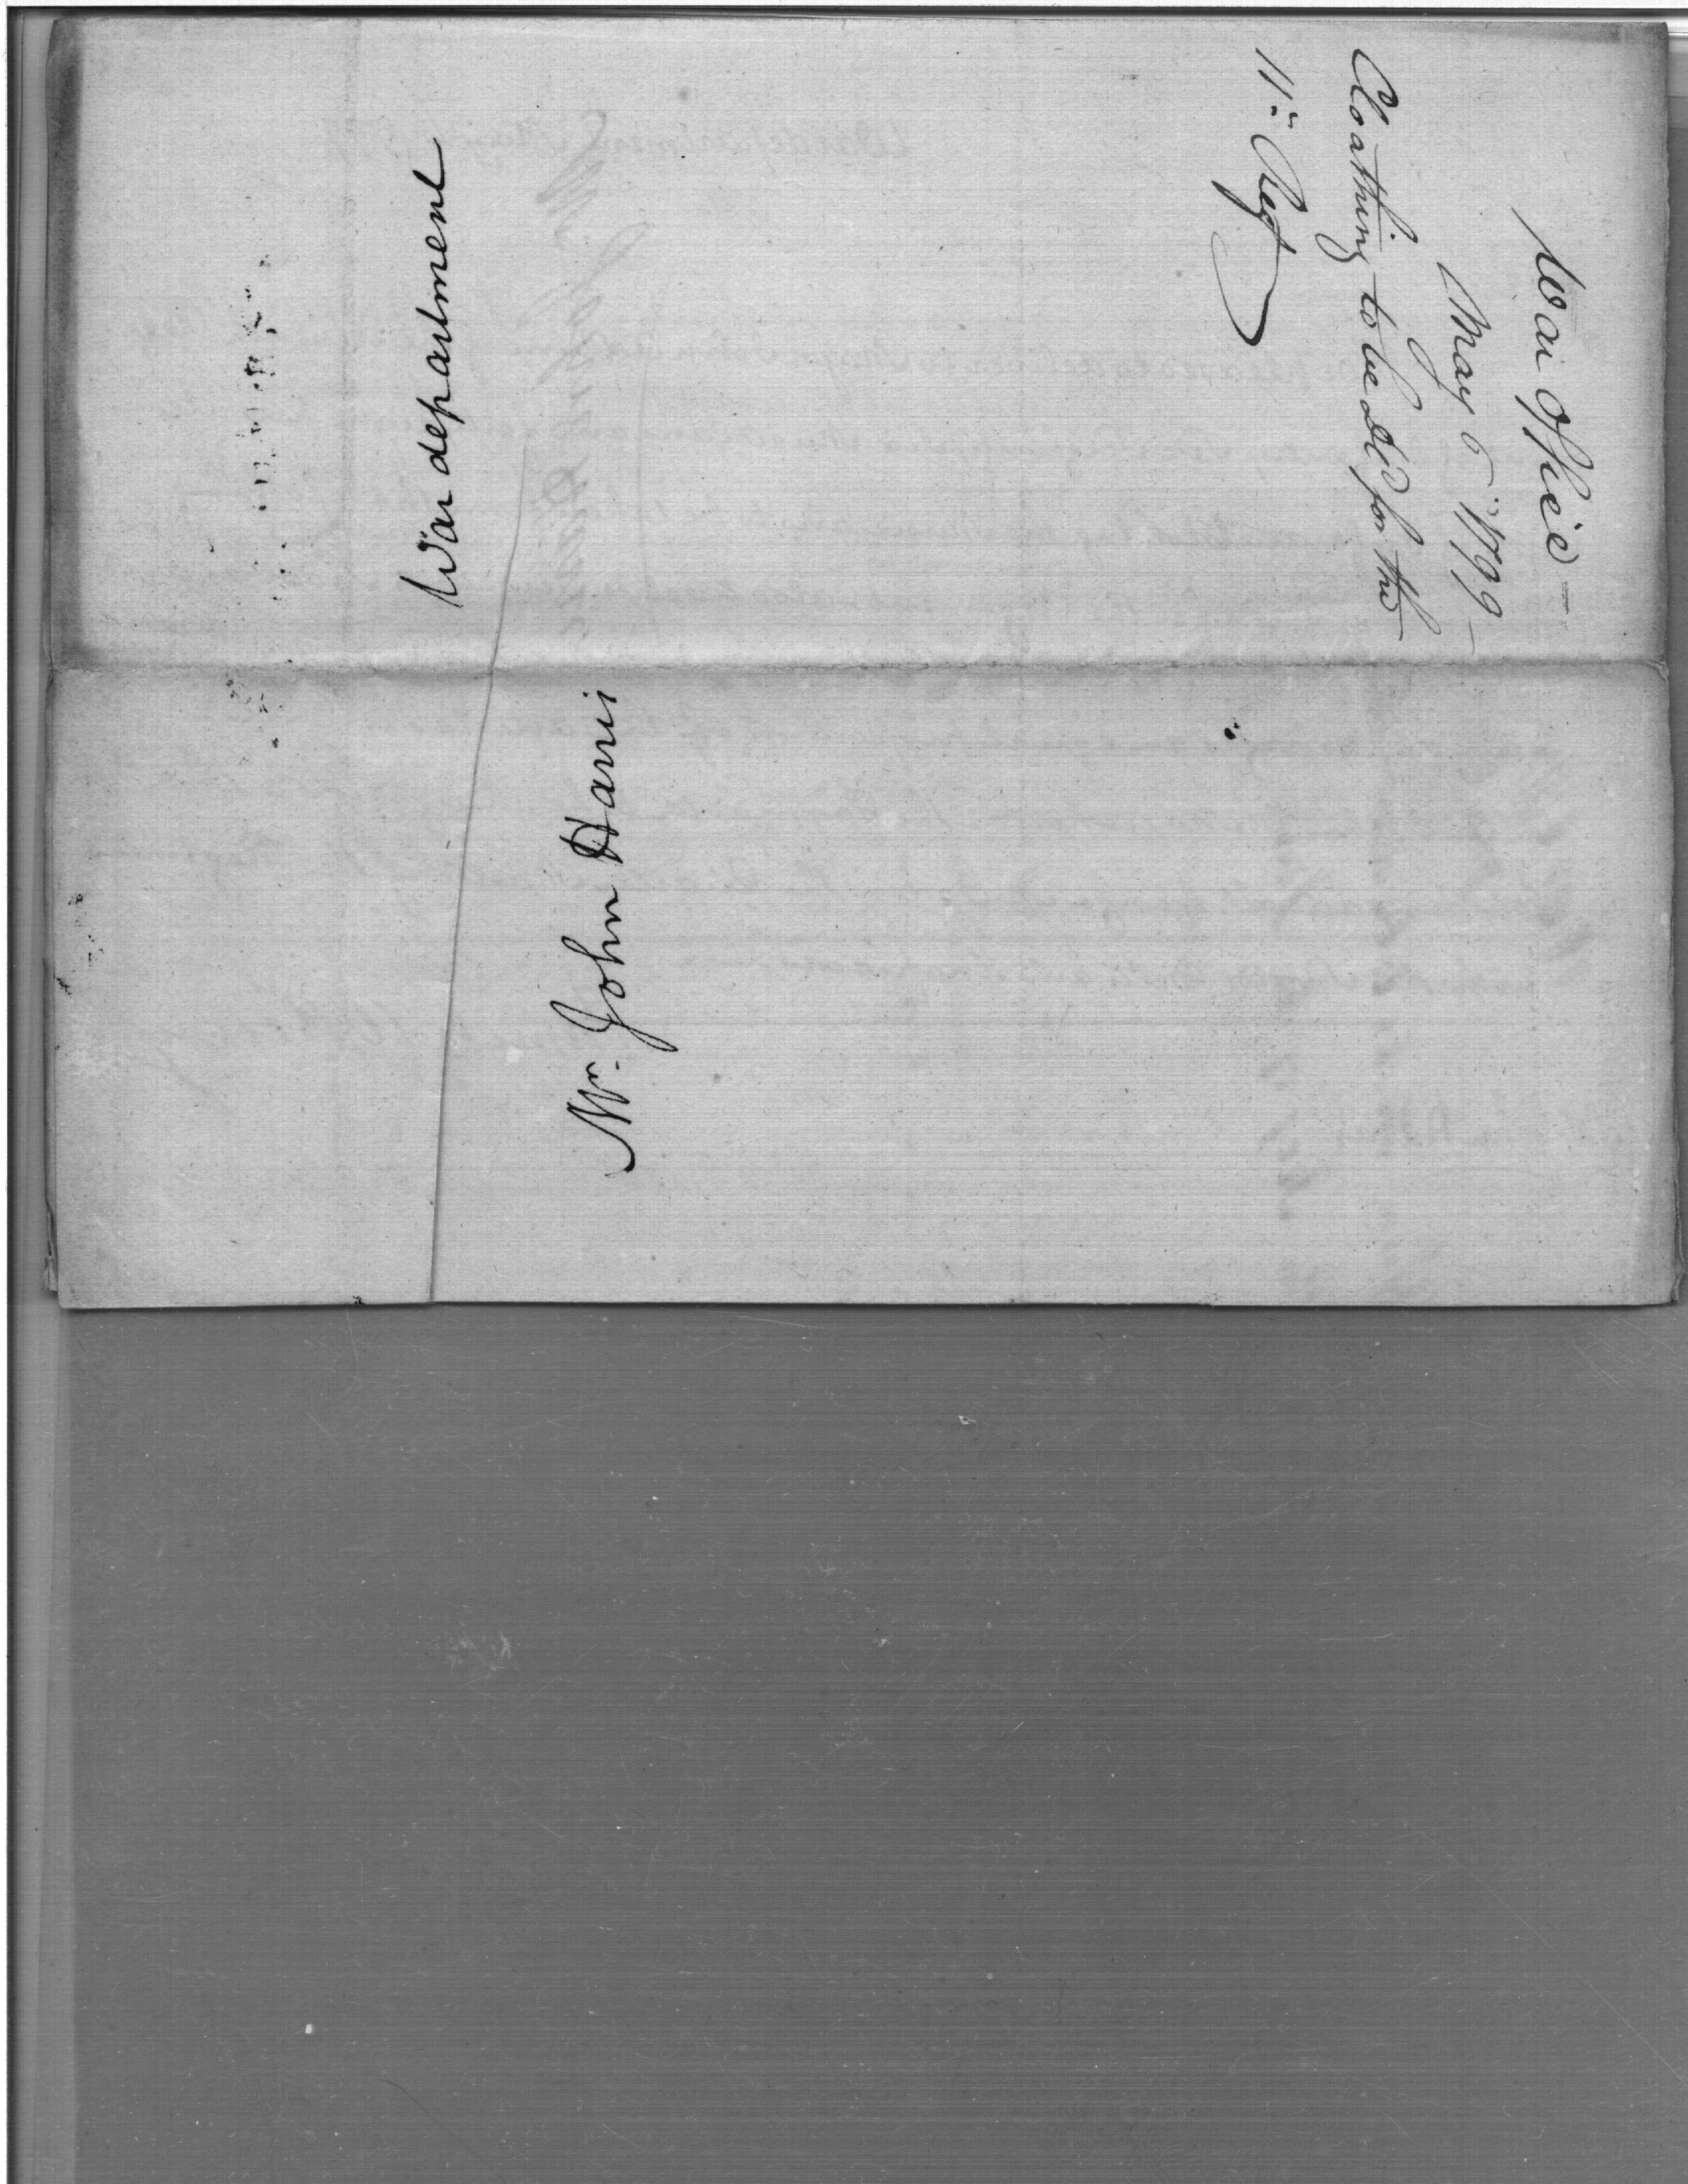 War Office
May 6th 1799
Cloathing to be dd for the
11th Regt
War department
Mr. John Harris